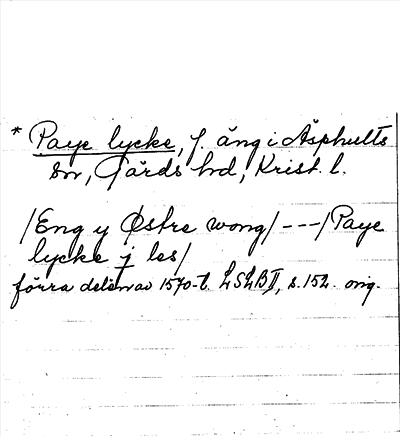 * Paye lycke, f. äng i Äsphults
sn, Gärds hd, Krist. l.
/Eng y Østre wong/ ---/Paye
lycke j les/
förra delen av 1570-t. LSLB II, s. 152. orig.